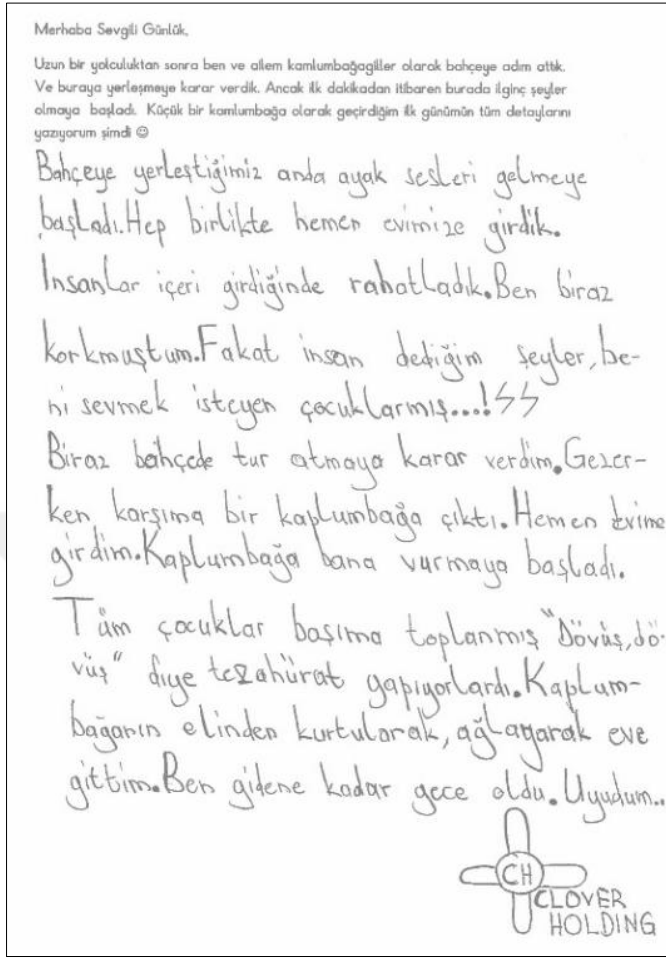 Merhaba Sevgili Günlük,
Uzun bir yolculuktan sonra ben ve ailem kamlumbağagiller olarak bahçeye adım attık.
Ve buraya yerleşmeye karar verdik. Ancak ilk dakikadan itibaren burada ilginç şeyler
olmaya başladı. Küçük bir kamlumbağa olarak geçirdiğim ilk günümün tüm detaylarını
yazıyorum şimdi ☺
Bahçeye yerleştiğimiz anda ayak sesleri gelmeye
başladı.Hep birlikte hemen evimize girdik.
İnsanlar içeri girdiğinde rahatladık.Ben biraz
korkmuştum.Fakat insan dediğim şeyler, be-
ni sevmek isteyen çocuklarmış...!ϟϟ
Biraz bahçede tur atmaya karar verdim.Gezer-
ken karşıma bir kaplumbağa çıktı.Hemen evime
girdim.Kaplumbağa bana vurmaya başladı.
Tüm çocuklar başıma toplanmış "Dövüş,dö-
vüş" diye tezahürat yapıyorlardı.Kaplum-
bağanın elinden kurtularak, ağlayarak eve
gittim.Ben gidene kadar gece oldu.Uyudum..
CH
CLOVER
HOLDING